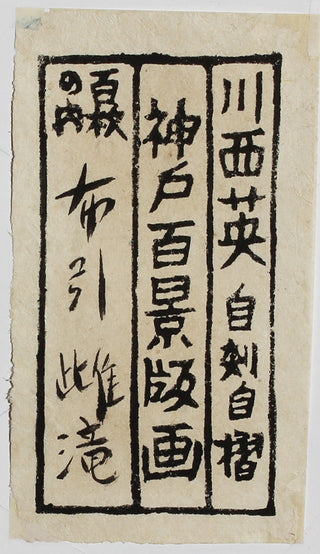 川西英 自刻自摺
神戸百景版画
百枚の内
布引雌滝